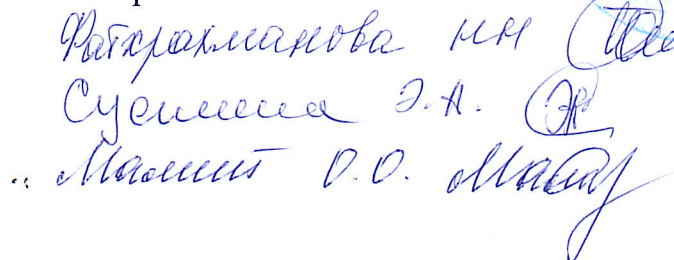 Фатхрахманова НН
Сусимена Э.А.
Малит О.О.